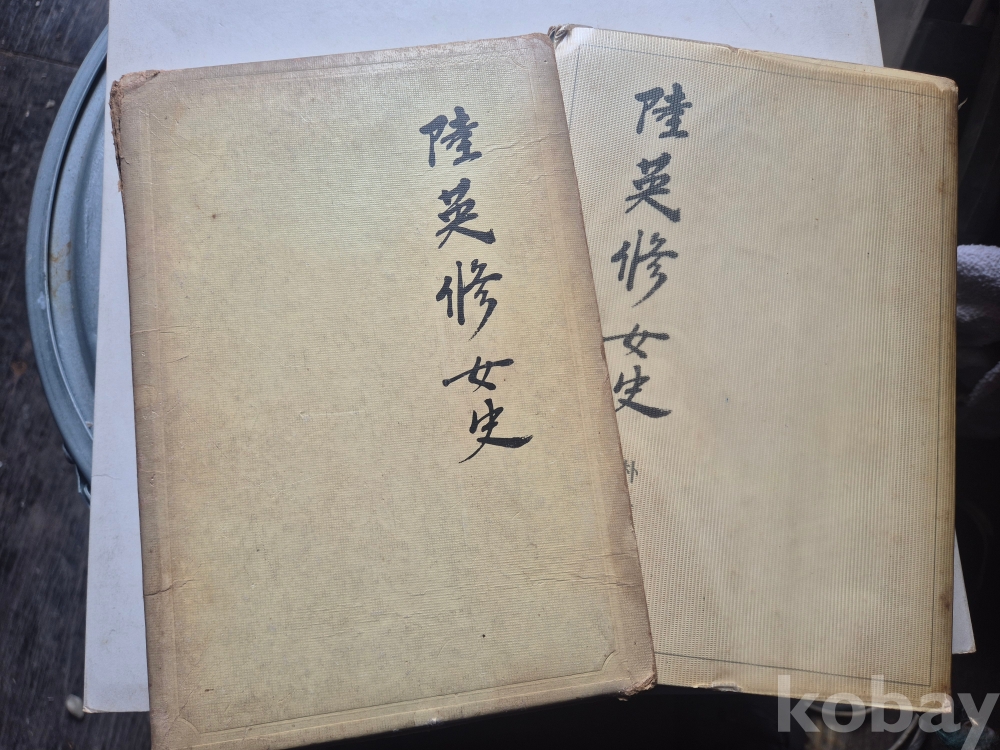 陸英修女史
陸英修女史
朴
kobay